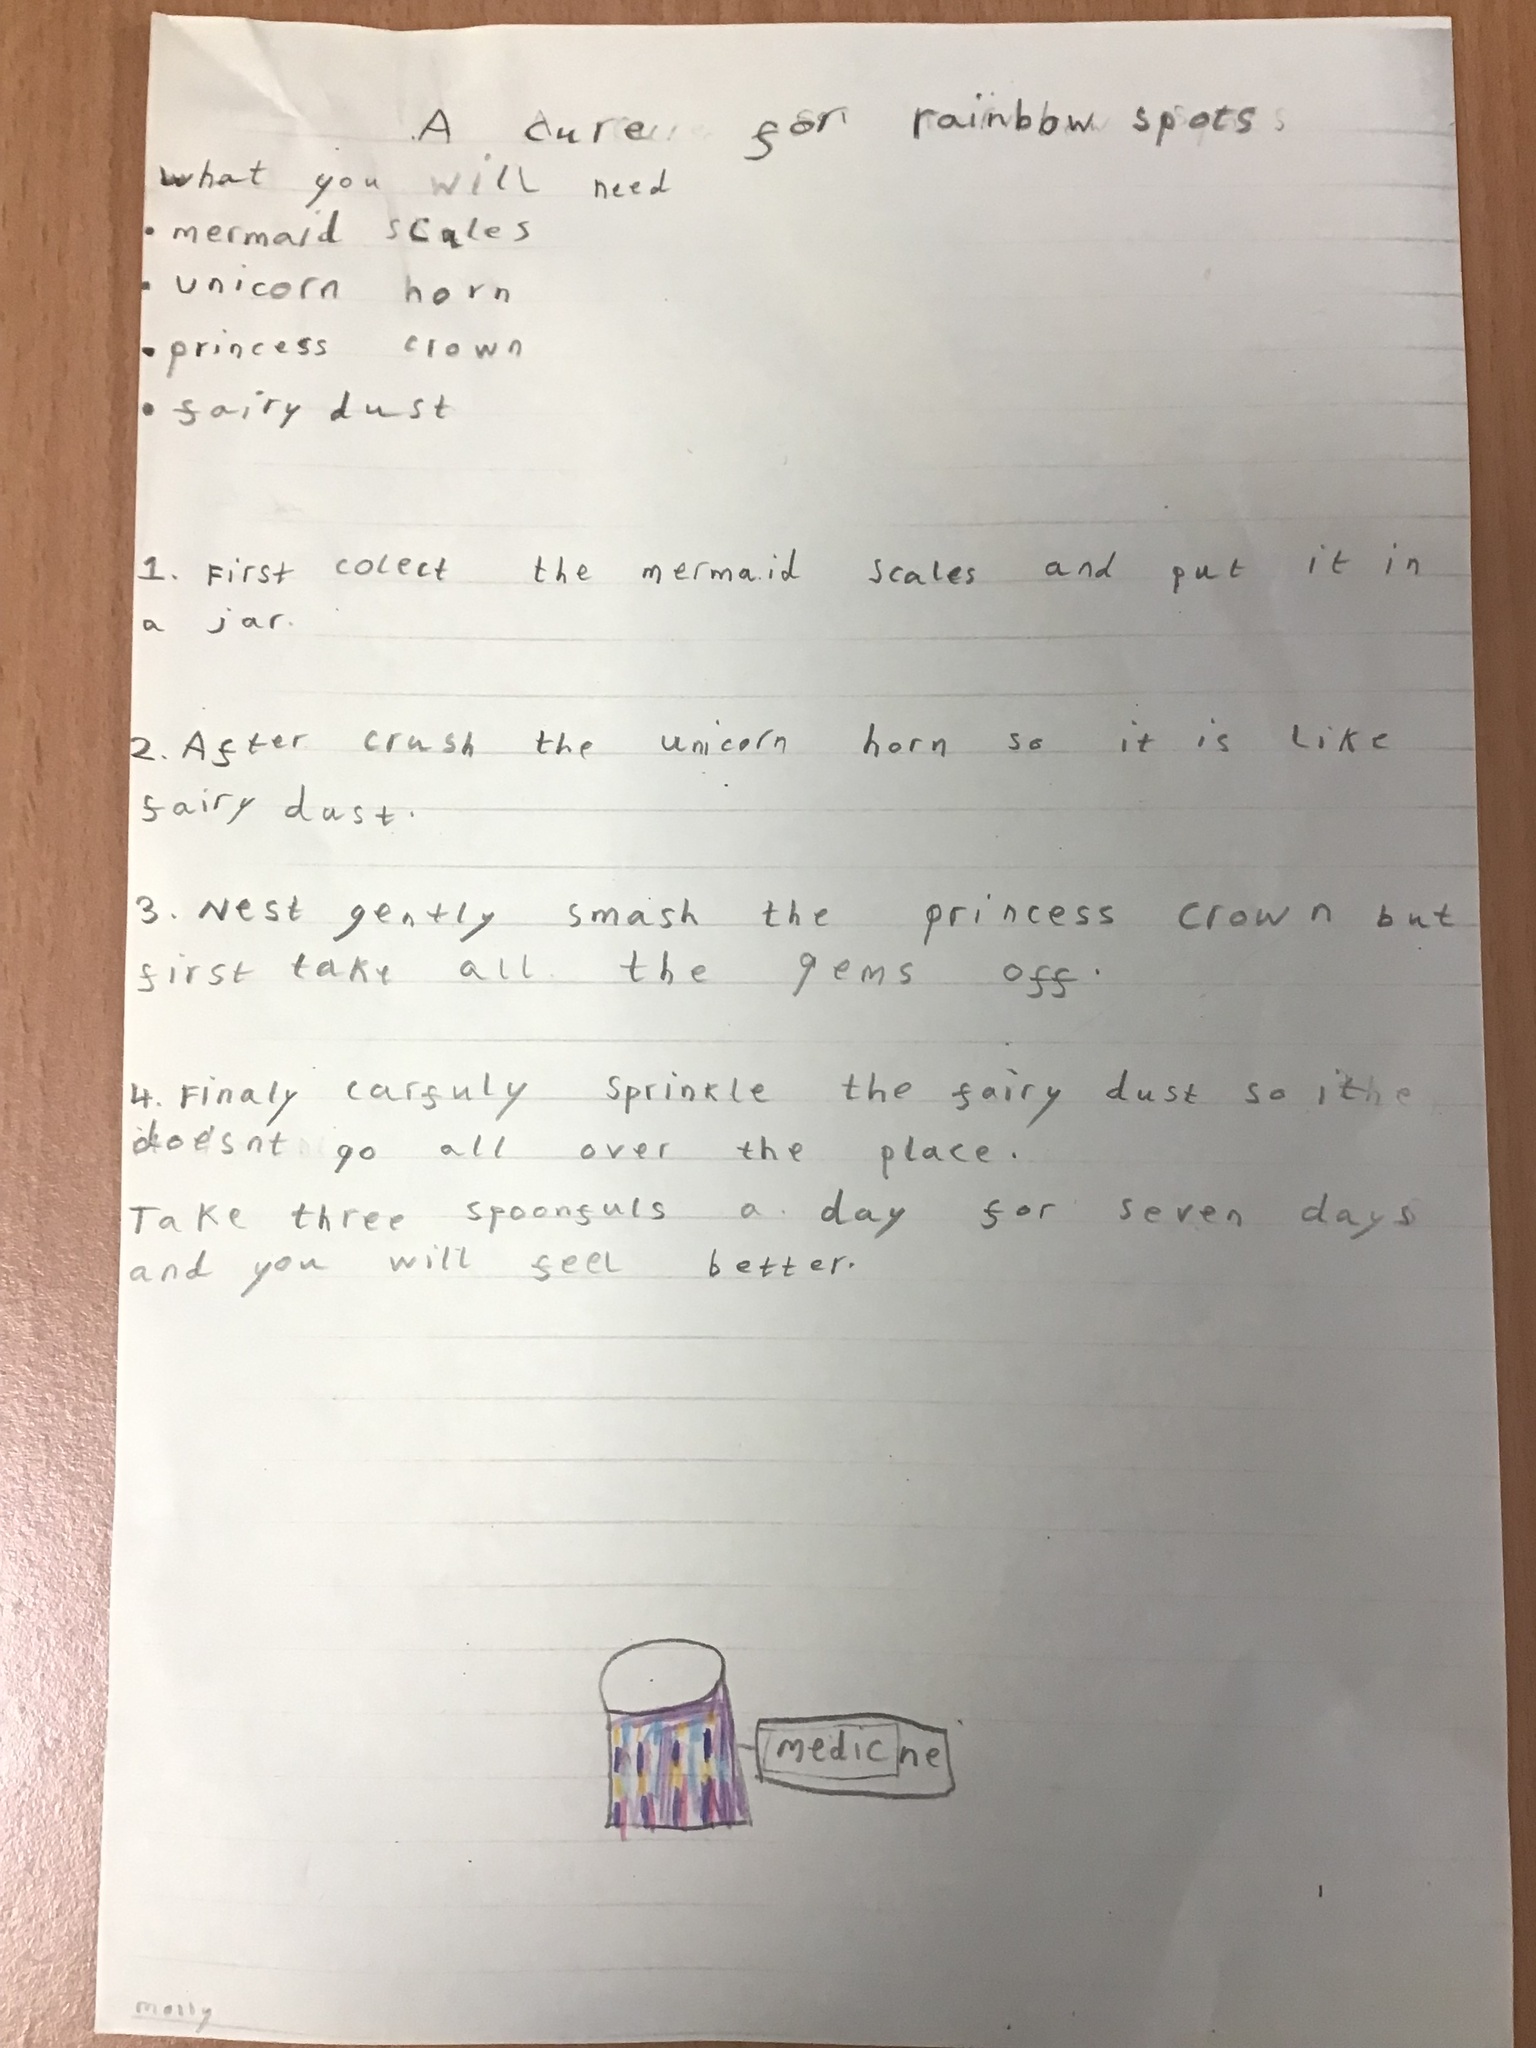 A cure for rainbow spots
What you will need
• mermaid scales
• unicorn horn
• princess crown
• fairy dust
1. First colect the mermaid scales and put it in
a jar.
2. After crush the unicorn horn so it is like
fairy dust.
3. Nest gently smash the princess crown but
first take all the gems off.
4. Finaly carfuly sprinkle the fairy dust so it
doesnt go all over the place.
Take three spoonfuls a day for seven days
and you will feel better.
medicne
molly